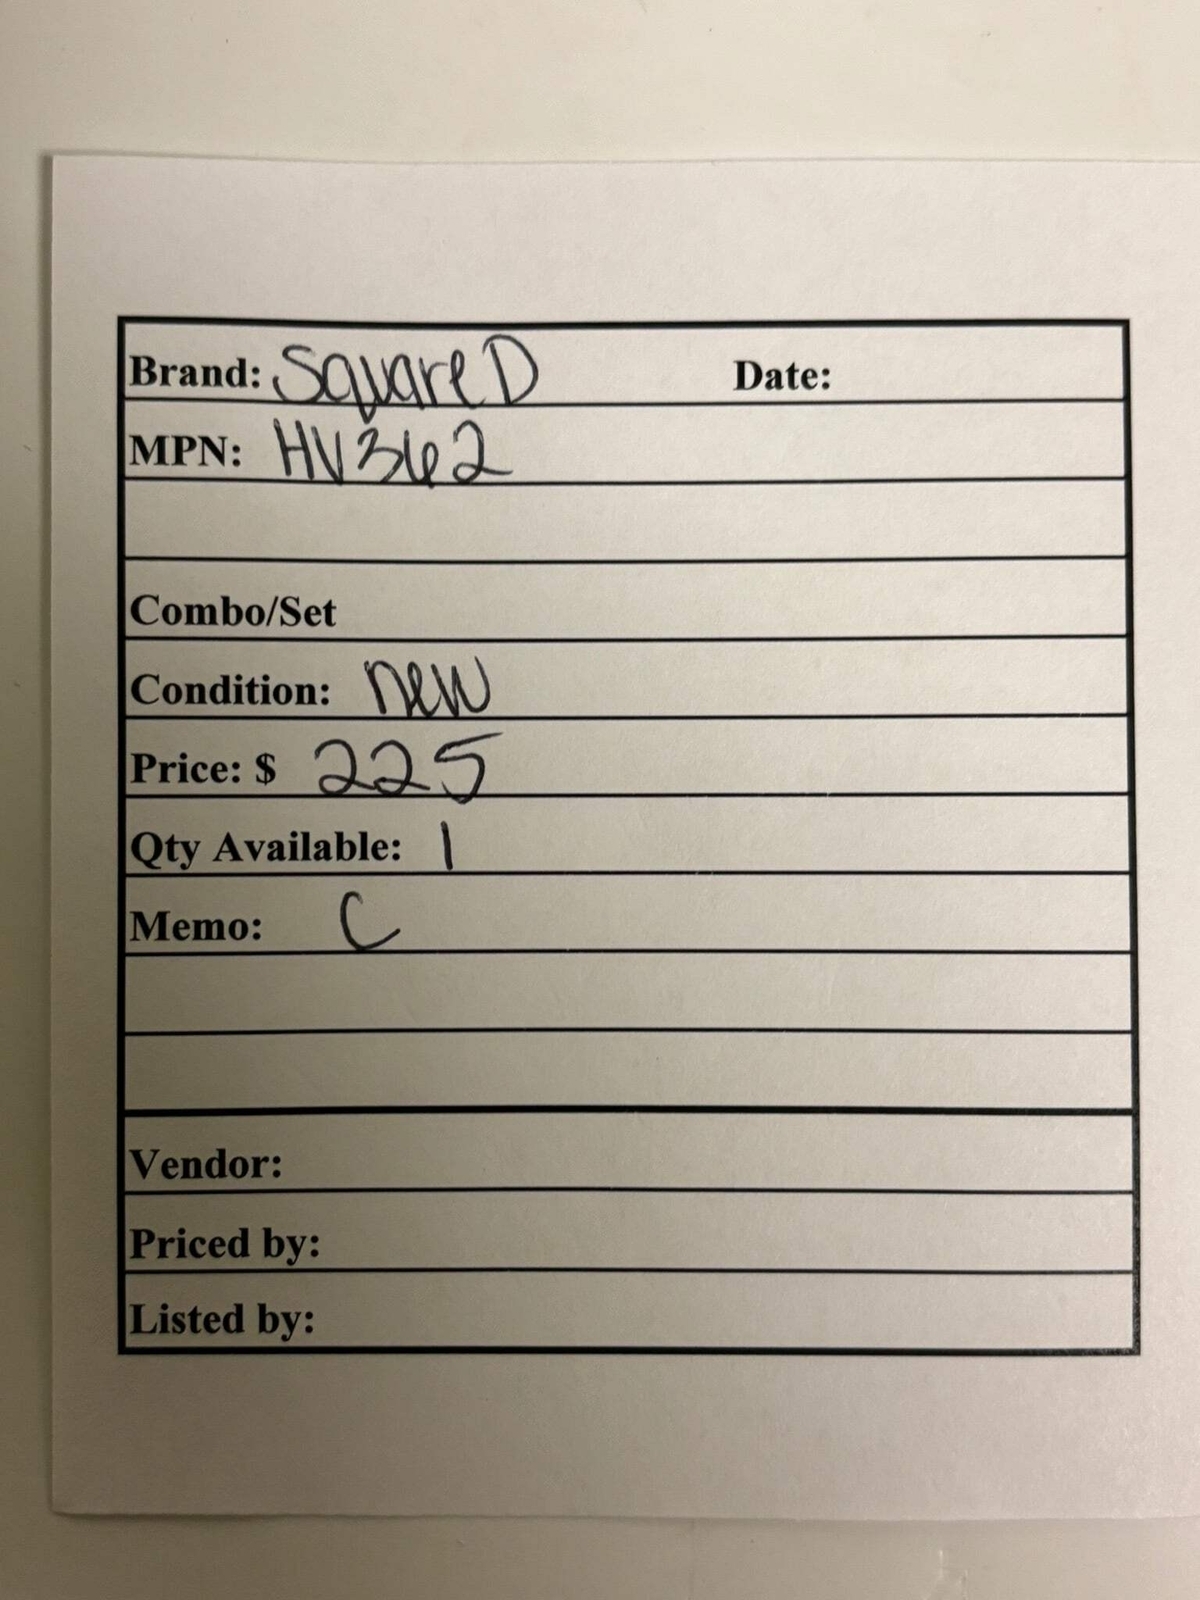 Brand: Square D Date:
MPN: HV362
Combo/Set
Condition: new
Price: $ 225
Qty Available: 1
Memo: C
Vendor:
Priced by:
Listed by: